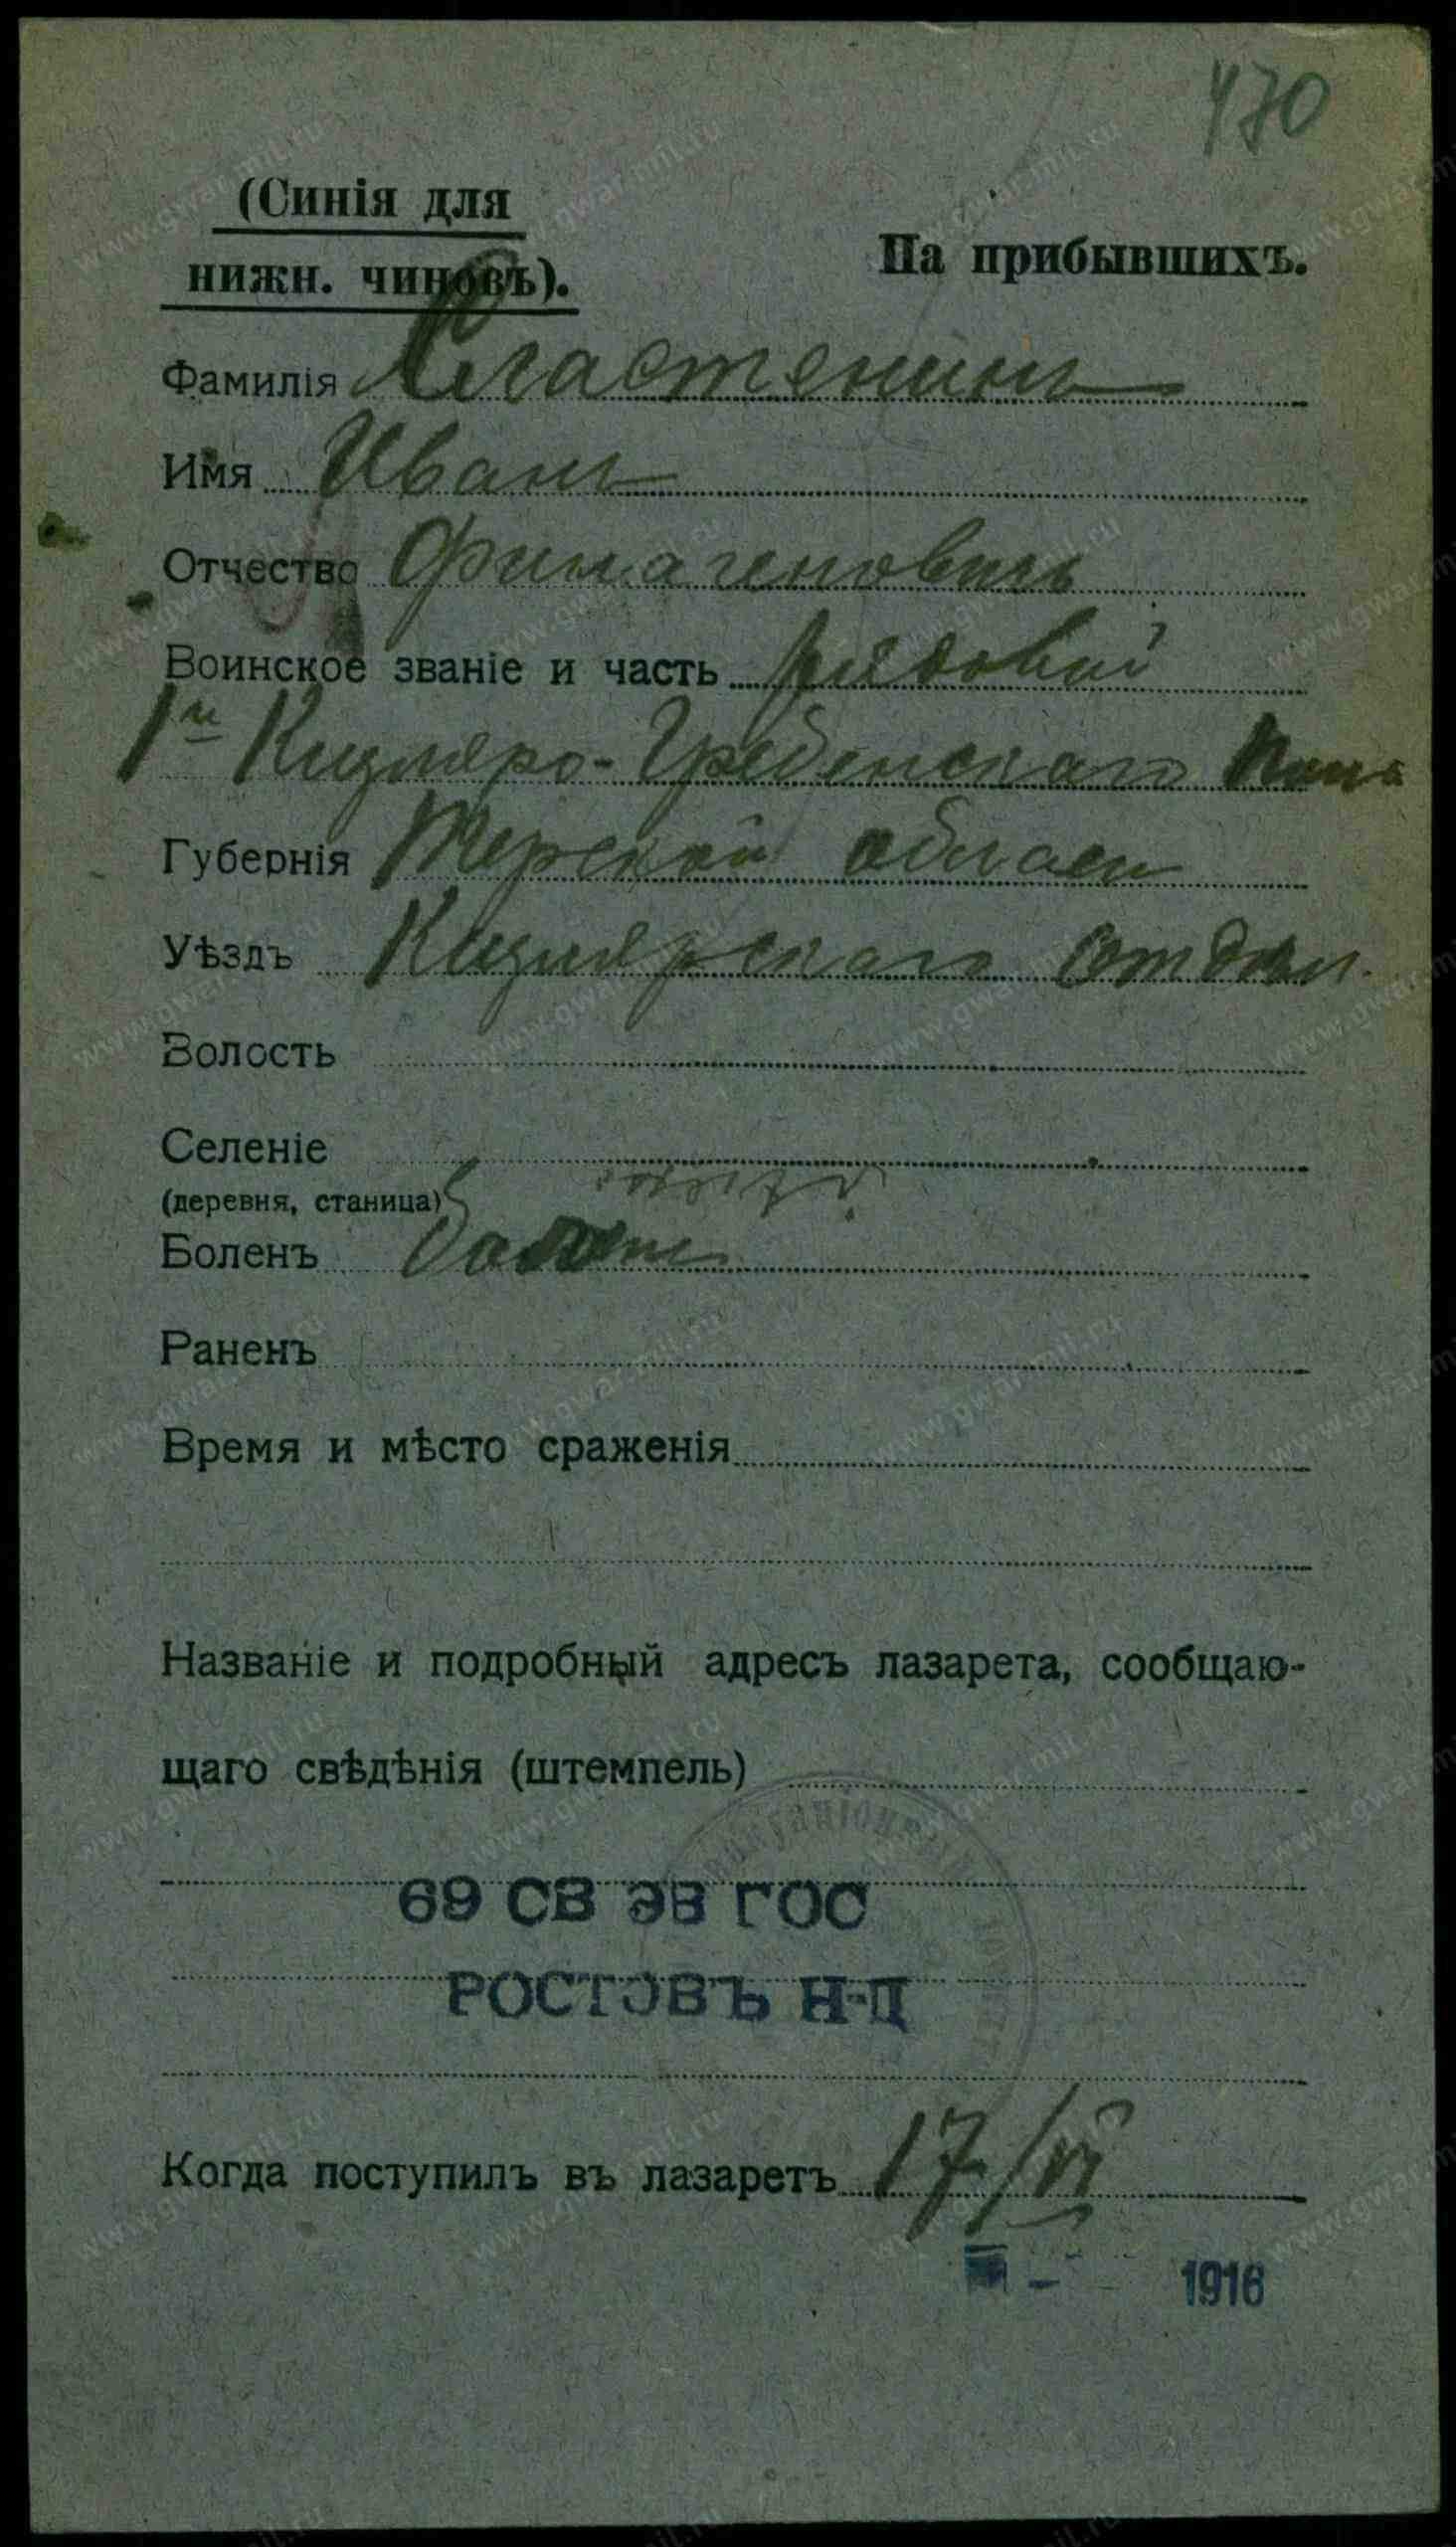 470
(Синія для
нижн. чиновъ).
На прибывшихъ.
Фамилія Сластенинъ
Имя Иванъ
Отчество Филагеновичъ
Воинское званіе и часть рядовой
1й Кизляро-Гребенскаго
Губернія Терской област
Уѣздъ Кизлярскаго Отдѣл.
Волость
Селеніе
(деревня, станица)
Боленъ болен
Раненъ
Время и мѣсто сраженія
Названіе и подробный адресъ лазарета, сообщаю-
щаго свѣдѣнія (штемпель)
69 СВ ЭВ ГОС
РОСТОВЪ Н-Д
Когда поступилъ въ лазаретъ 17/VI
1916